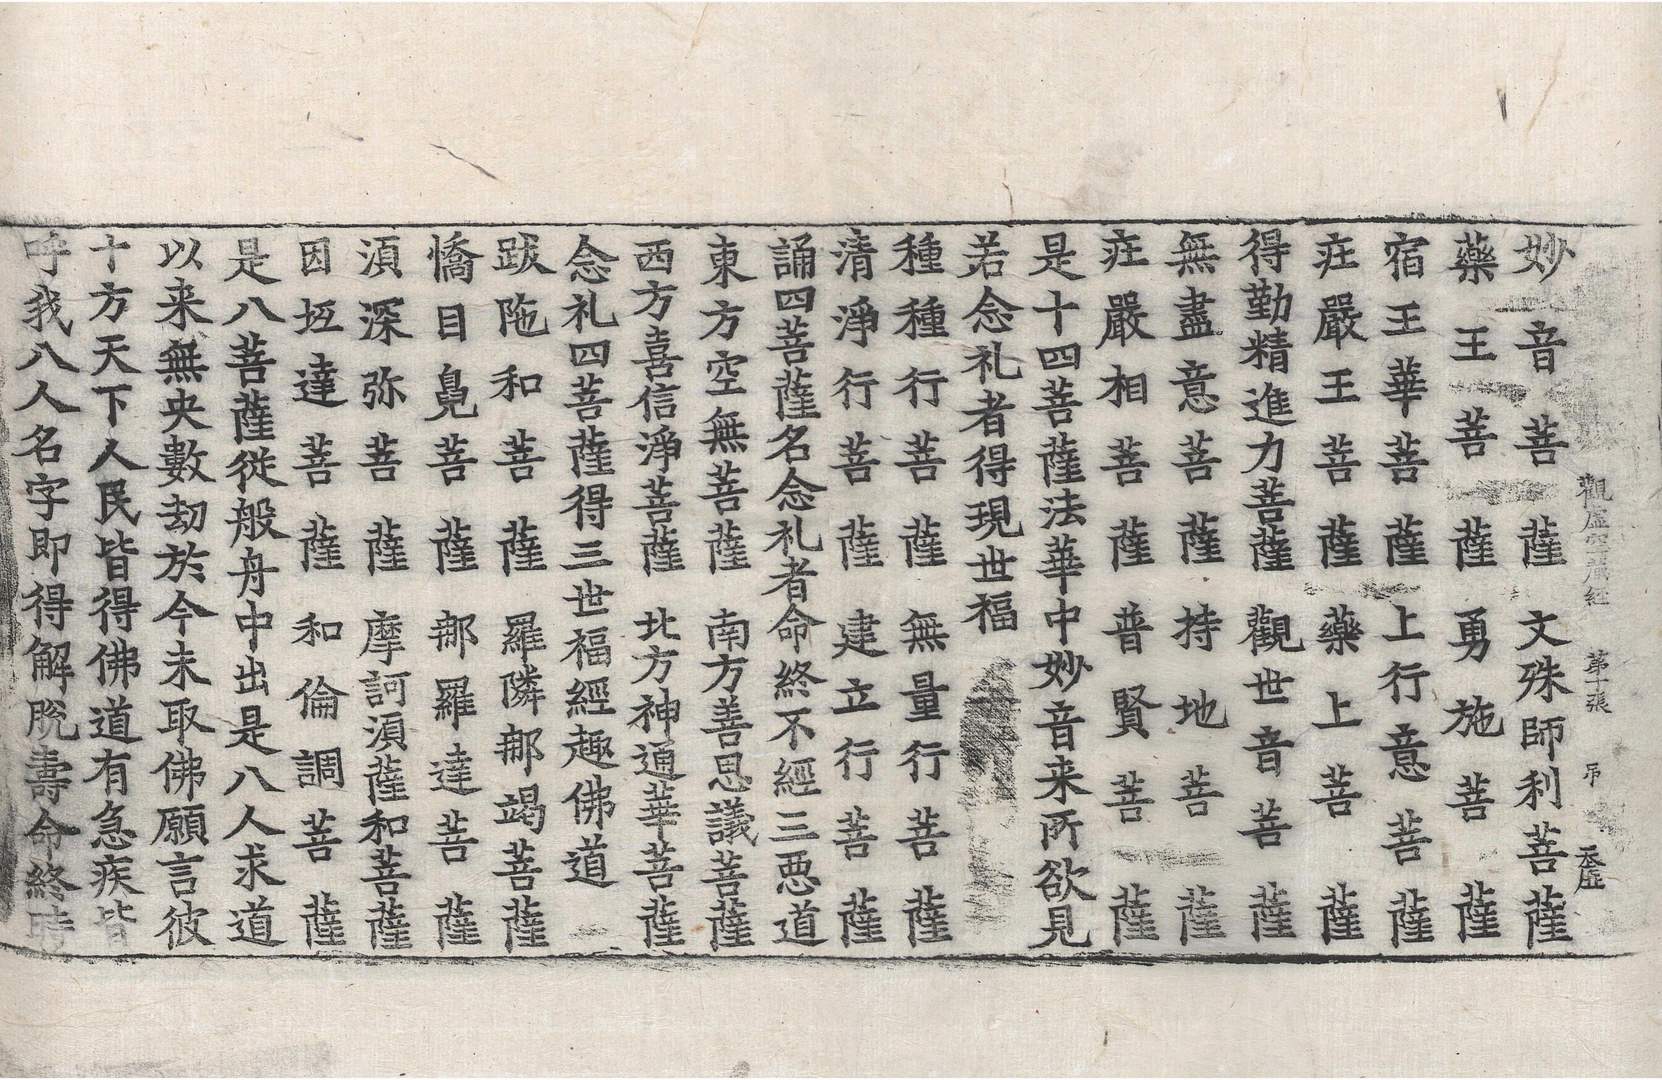 觀虛空藏經　第十張　弔　天虛
妙音菩薩　文殊師利菩薩
藥王菩薩　勇施菩薩
宿王華菩薩　上行意菩薩
疘嚴王菩薩　藥上菩薩
得勤精進力菩薩　觀世音菩薩
無盡意菩薩　持地菩薩
疘嚴相菩薩　普賢菩薩
是十四菩薩法華中妙音来所欲見
若念礼者得現世福
種種行菩薩　無量行菩薩
清淨行菩薩　建立行菩薩
誦四菩薩名念礼者命終不經三惡道
東方空無菩薩　南方善思議菩薩
西方喜信淨菩薩　北方神通華菩薩
念礼四菩薩得三世福經趣佛道
跋陁和菩薩　羅隣那竭菩薩
憍目兠菩薩　那羅達菩薩
湏深弥菩薩　摩訶湏薩和菩薩
因坻達菩薩　和倫調菩薩
是八菩薩從般舟中出是八人求道
以来無央數劫於今未取佛願言彼
十方天下人民皆得佛道有急疾皆
呼我八人名字即得解脫壽命終時